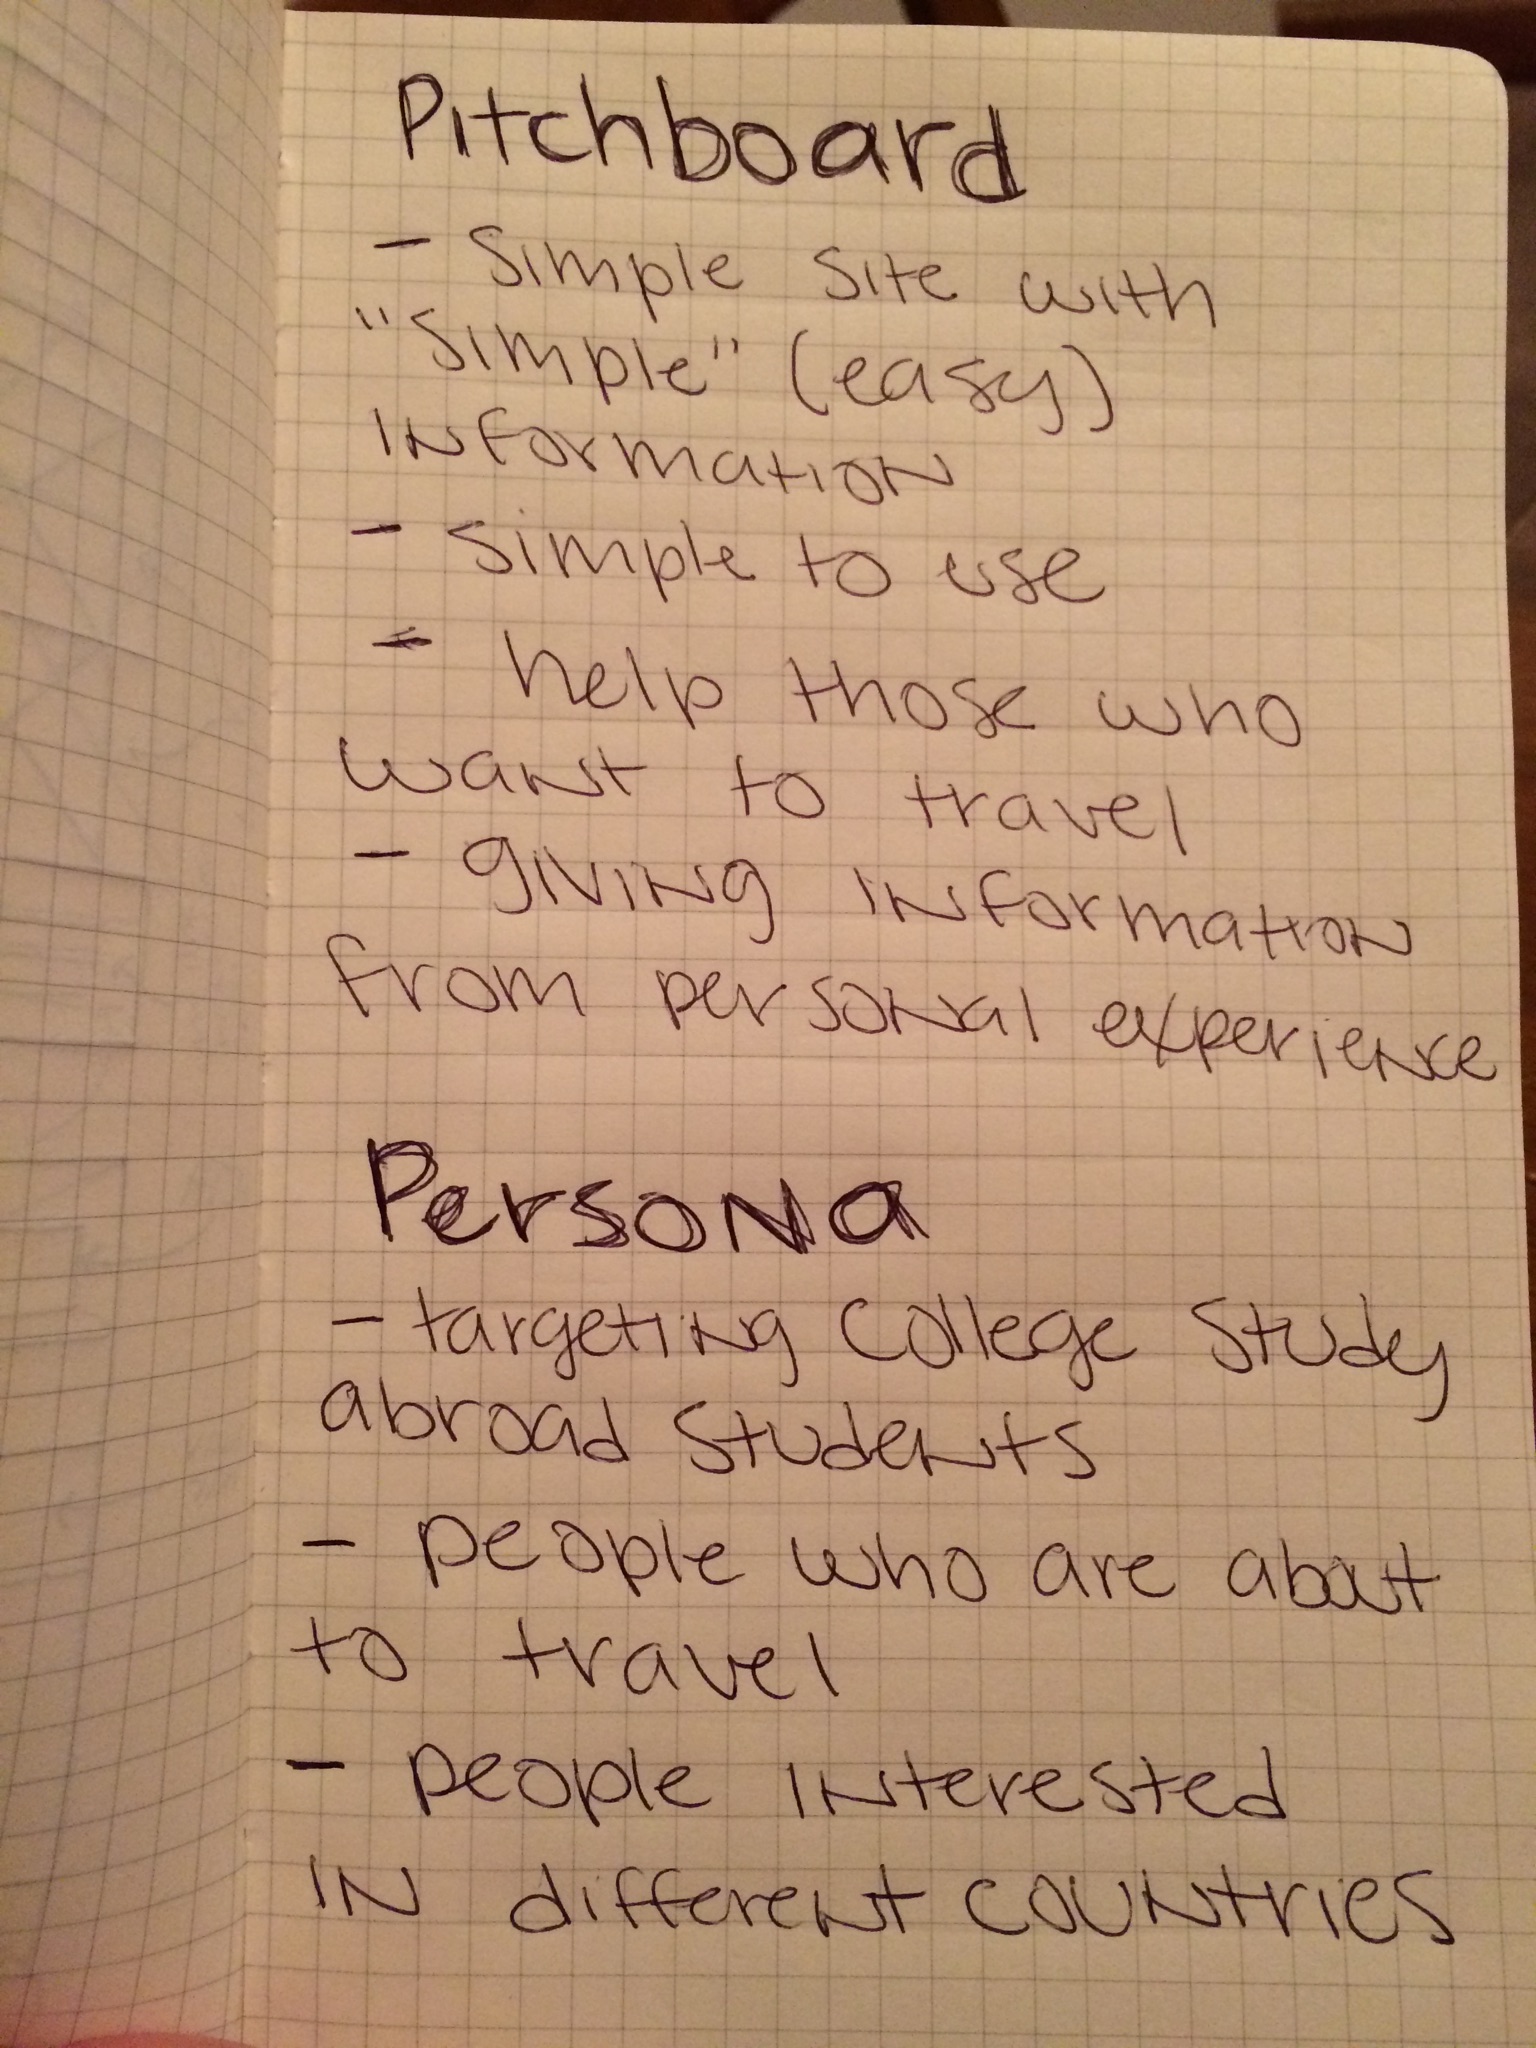 Pitchboard
- Simple site with
"Simple" (easy)
information
- simple to use
- help those who
want to travel
- giving information
from personal experience
Persona
- targeting College Study
abroad Students
- people who are about
to travel
- people interested
in different countries